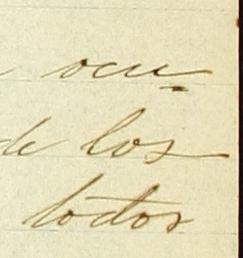 ocu-
de los
todos